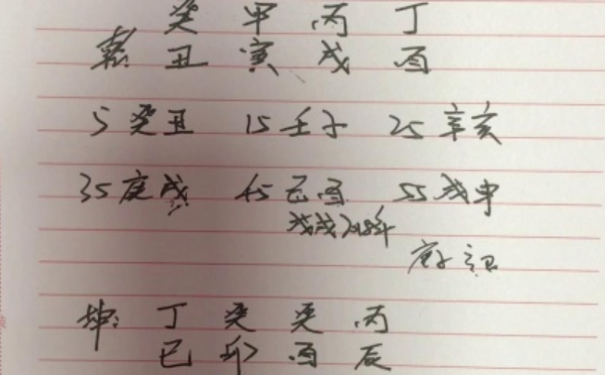 癸 甲 丙 丁
乾: 丑 寅 戌 酉
5癸丑 15壬子 25辛亥
35庚戌 45己酉 55戊申
戊戌2018年
庚子
坤: 丁 癸 癸 丙
巳 卯 酉 辰